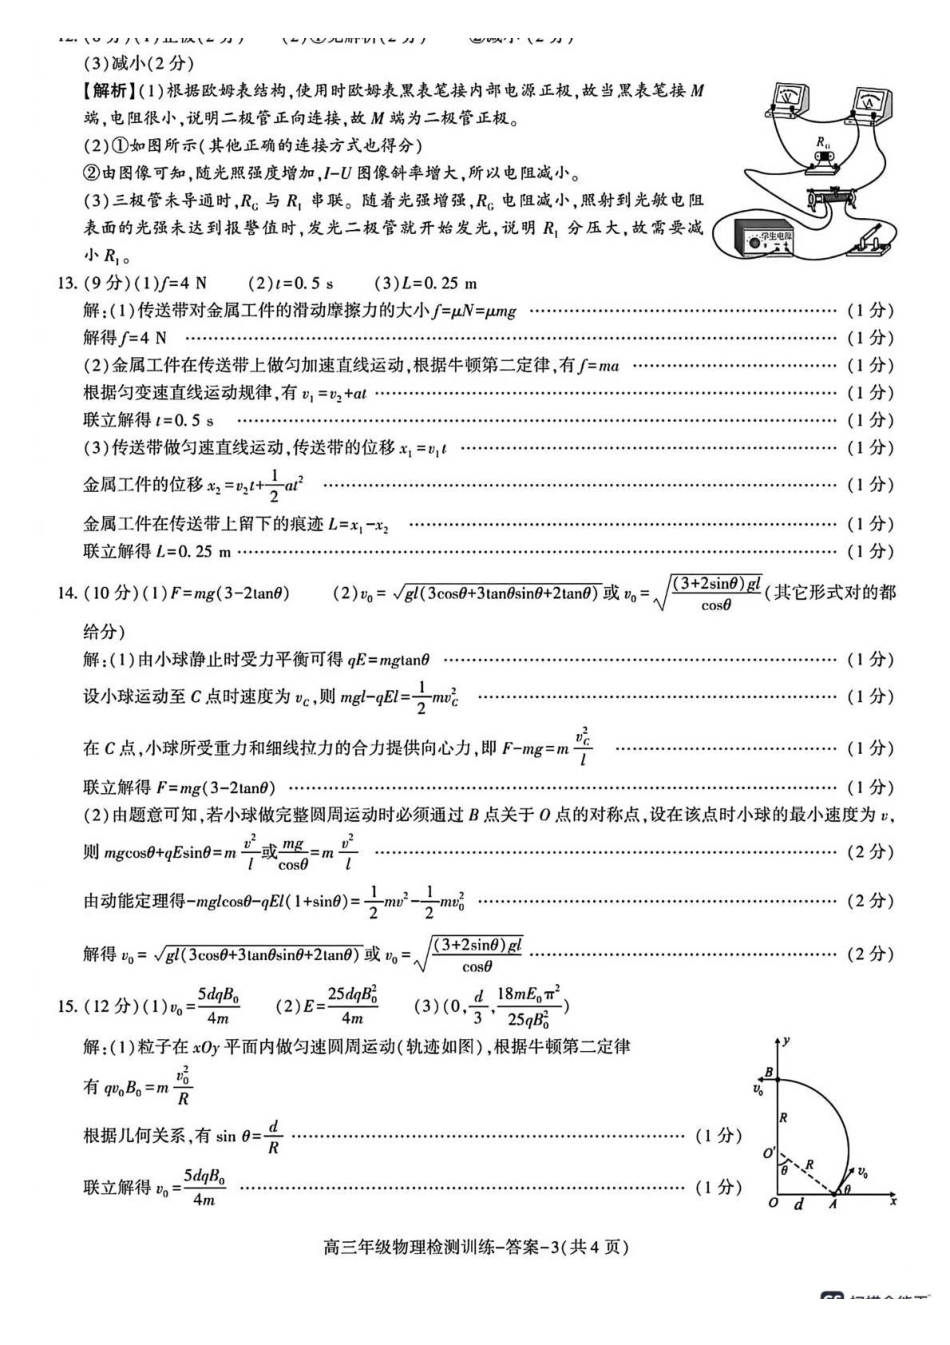 (3)减小(2分)
【解析】(1)根据欧姆表结构,使用时欧姆表黑表笔接内部电源正极,故当黑表笔接M
端,电阻很小,说明二极管正向连接,故M端为二极管正极。
(2)①如图所示(其他正确的连接方式也得分)
②由图像可知,随光照强度增加,I-U图像斜率增大,所以电阻减小。
(3)三极管未导通时,R_G与R₁串联。随着光强增强,R_G电阻减小,照射到光敏电阻
表面的光强未达到报警值时,发光二极管就开始发光,说明R₁分压大,故需要减
小R₁。
V
A
R_G
学生电源
13.(9分)(1)f=4 N (2)t=0.5 s (3)L=0.25 m
解:(1)传送带对金属工件的滑动摩擦力的大小f=μN=μmg ……(1分)
解得f=4 N ……(1分)
(2)金属工件在传送带上做匀加速直线运动,根据牛顿第二定律,有f=ma ……(1分)
根据匀变速直线运动规律,有v₁=v₂+at ……(1分)
联立解得t=0.5 s ……(1分)
(3)传送带做匀速直线运动,传送带的位移x₁=v₁t ……(1分)
金属工件的位移x₂=v₂t+1/2at² ……(1分)
金属工件在传送带上留下的痕迹L=x₁-x₂ ……(1分)
联立解得L=0.25 m ……(1分)
14.(10分)(1)F=mg(3-2tanθ) (2)v₀=√(gl(3cosθ+3tanθsinθ+2tanθ))或v₀=√((3+2sinθ)gl/cosθ)(其它形式对的都
给分)
解:(1)由小球静止时受力平衡可得qE=mgtanθ ……(1分)
设小球运动至C点时速度为v_C,则mgl-qEl=1/2mv_C² ……(1分)
在C点,小球所受重力和细线拉力的合力提供向心力,即F-mg=m v_C²/l ……(1分)
联立解得F=mg(3-2tanθ) ……(1分)
(2)由题意可知,若小球做完整圆周运动时必须通过B点关于O点的对称点,设在该点时小球的最小速度为v,
则mgcosθ+qEsinθ=m v²/l或mg/cosθ=m v²/l ……(2分)
由动能定理得-mglcosθ-qEl(1+sinθ)=1/2mv²-1/2mv₀² ……(2分)
解得v₀=√(gl(3cosθ+3tanθsinθ+2tanθ))或v₀=√((3+2sinθ)gl/cosθ) ……(2分)
15.(12分)(1)v₀=5dqB₀/4m (2)E=25dqB₀²/4m (3)(0,d/3,18mE₀π²/25qB₀²)
解:(1)粒子在xOy平面内做匀速圆周运动(轨迹如图),根据牛顿第二定律
有qv₀B₀=m v₀²/R
根据几何关系,有sin θ=d/R ……(1分)
联立解得v₀=5dqB₀/4m ……(1分)
y
B
v₀
R
O′
θ
R
v₀
θ
O d A x
高三年级物理检测训练-答案-3(共4页)